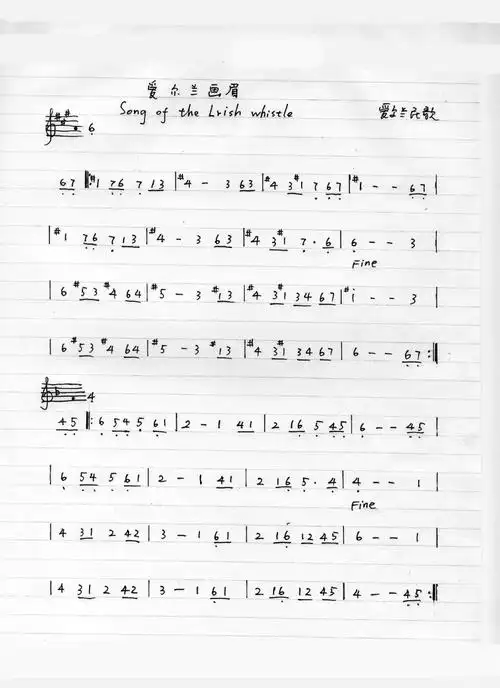 爱尔兰画眉
Song of the Lrish whistle 爱尔兰民歌
6
67 ‖: #1 76 7 13 | #4 - 3 63 | #4 3 #1 7 · 67 | #1 - - 67 |
| #1 76 7 13 | #4 - 3 63 | #4 3 #1 7 · 6 | 6 - - 3 |
Fine
| 6 #53 #4 64 | #5 - 3 #13 | #4 3 #1 34 67 | #i - - 3 |
| 6 #53 #4 64 | #5 - 3 #13 | #4 3 #1 34 67 | 6 - - 67 :‖
4
45 ‖: 6 54 5 61 | 2 - 1 41 | 2 16 5 45 | 6 - - 45 |
| 6 54 5 61 | 2 - 1 41 | 2 16 5 · 4 | 4 - - 1 |
Fine
| 4 31 2 42 | 3 - 1 61 | 2 16 12 45 | 6 - - 1 |
| 4 31 2 42 | 3 - 1 61 | 2 16 12 45 | 4 - - 45 :‖